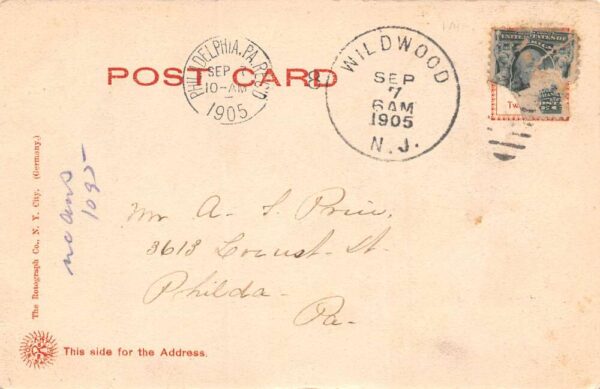 POST CARD
PHILADELPHIA, PA. REC'D
SEP 7
10-AM
1905
WILDWOOD
SEP
7
6 AM
1905
N. J.
8
UNITED STATES OF
Tw
Mr A. S. Price,
3613 Locust St.
Philda.
Pa.
no ans
1095
The Rotograph Co., N. Y. City. (Germany.)
This side for the Address.